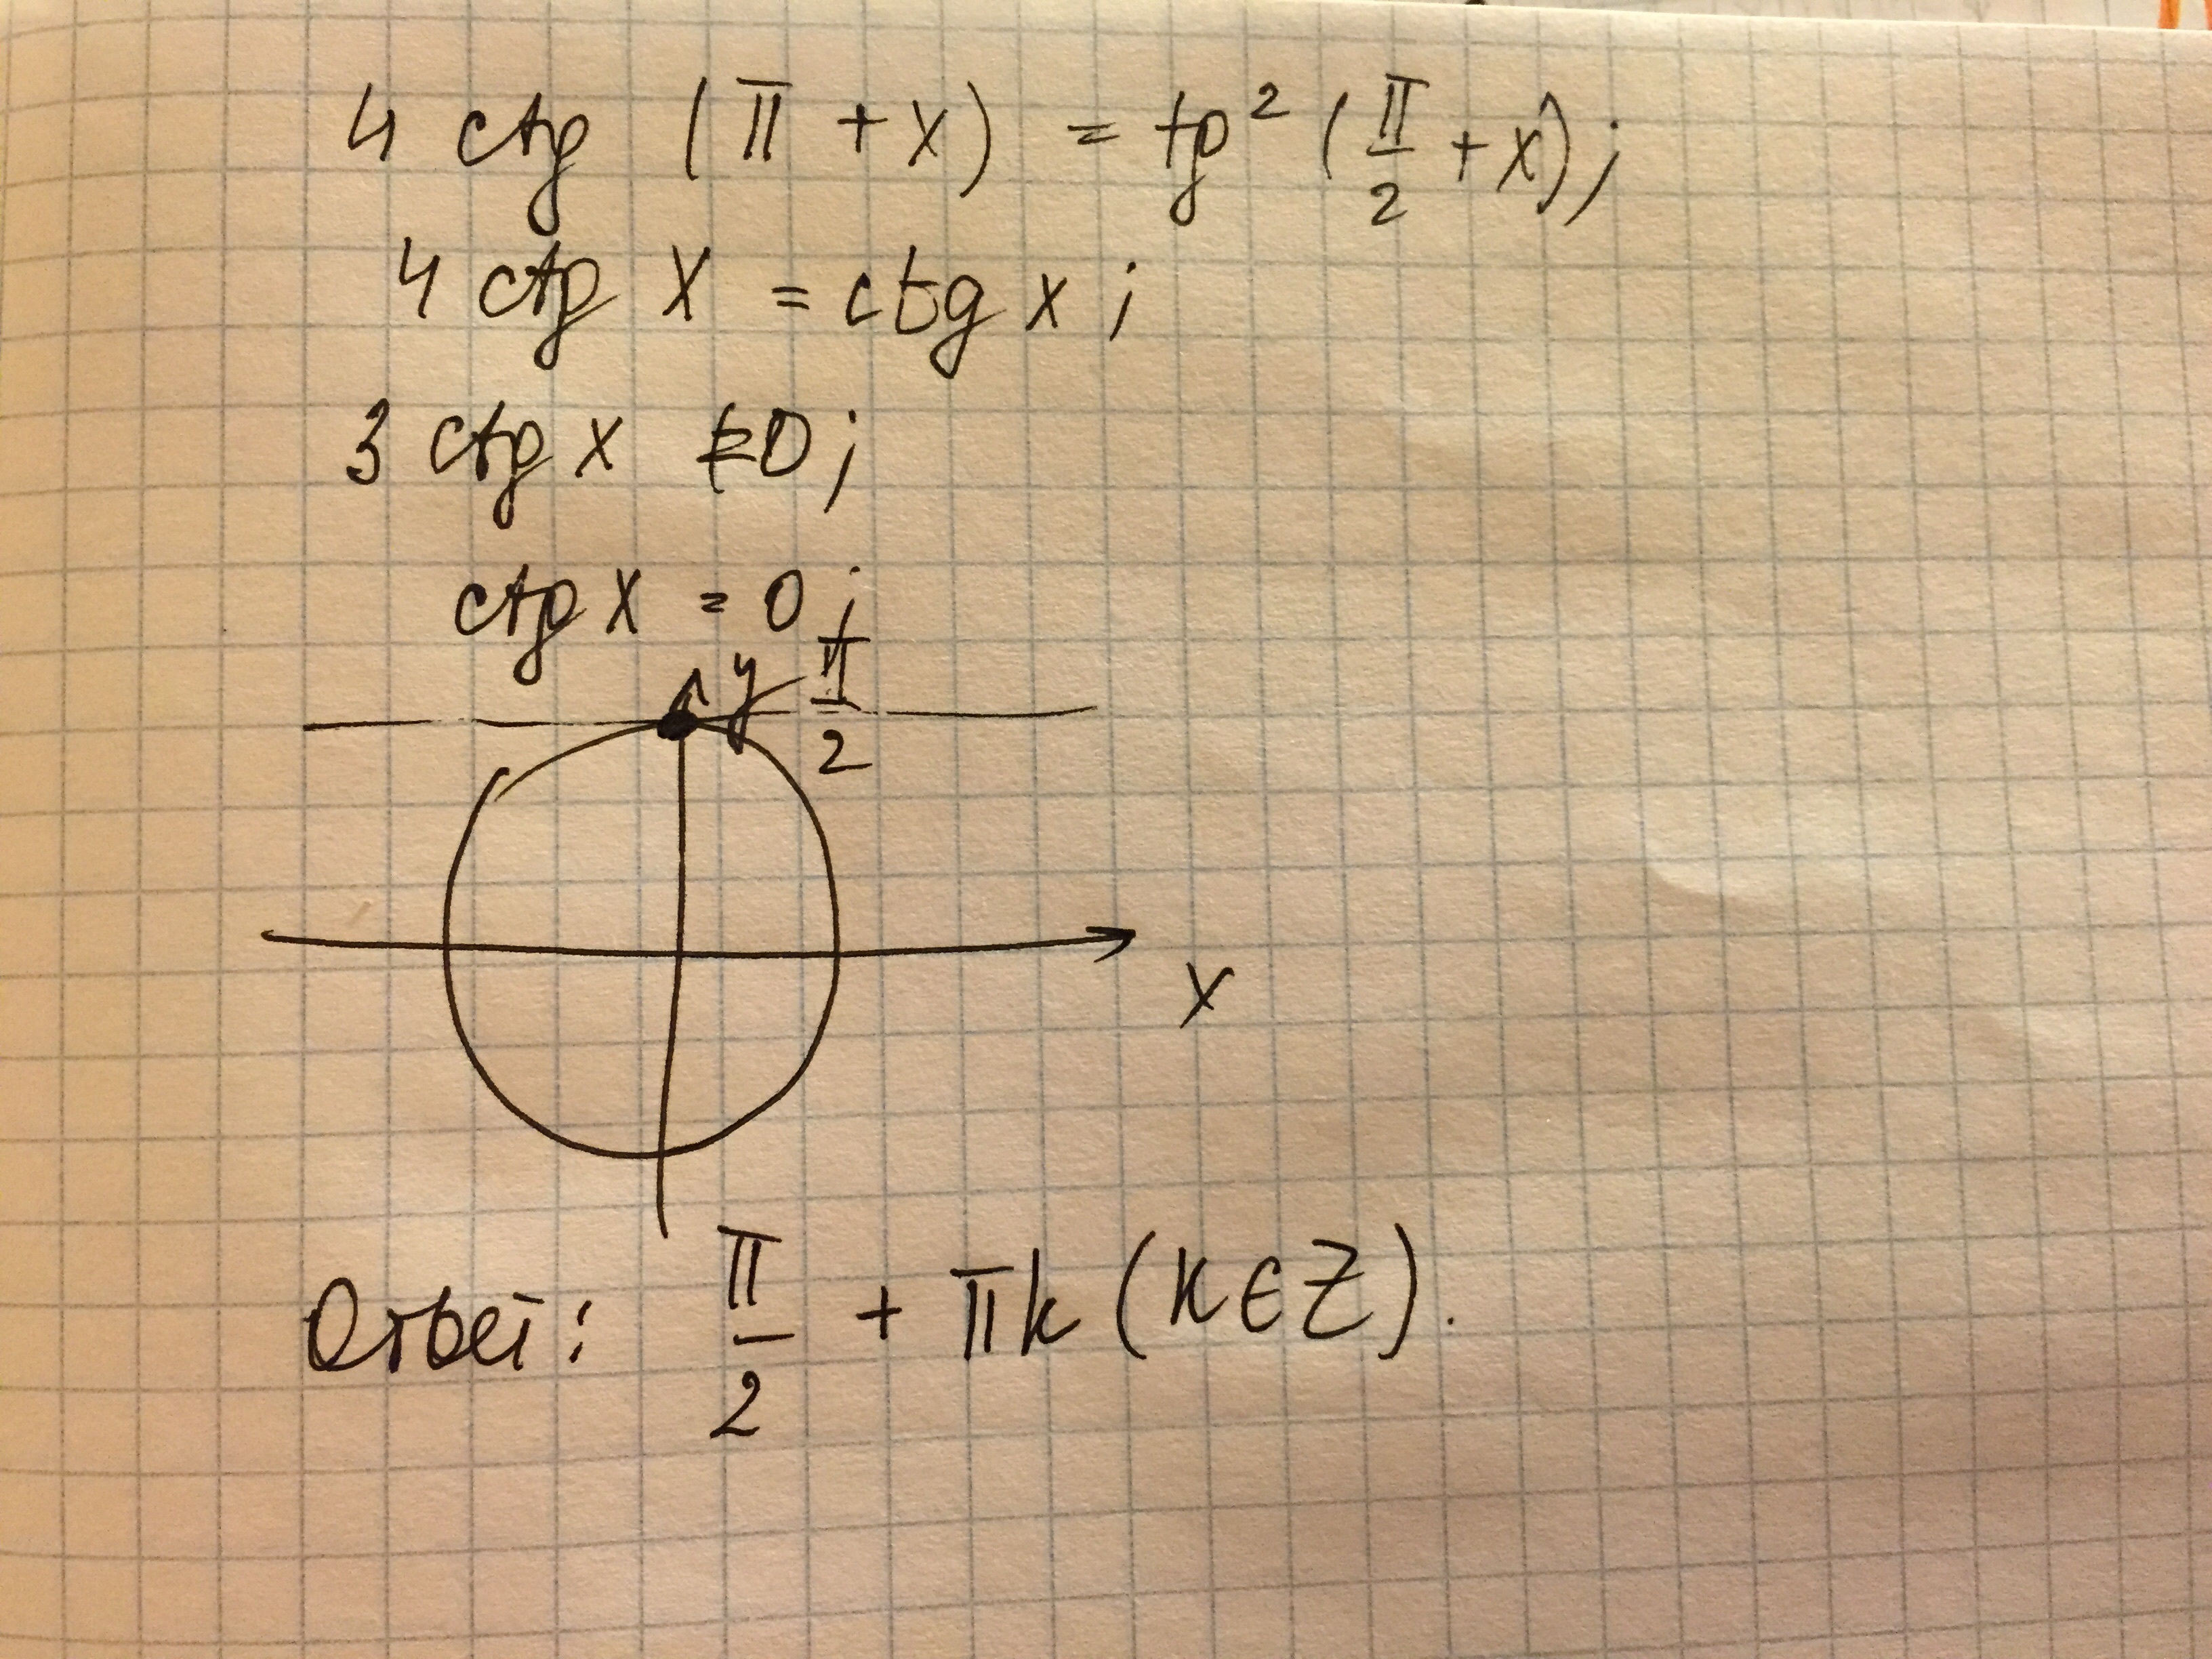 4 ctg (π + x) = tg² (π/2 + x);
4 ctg x = ctg x;
3 ctg x = 0;
ctg x = 0;
y π/2
x
Ответ: π/2 + πk (k∈Z).